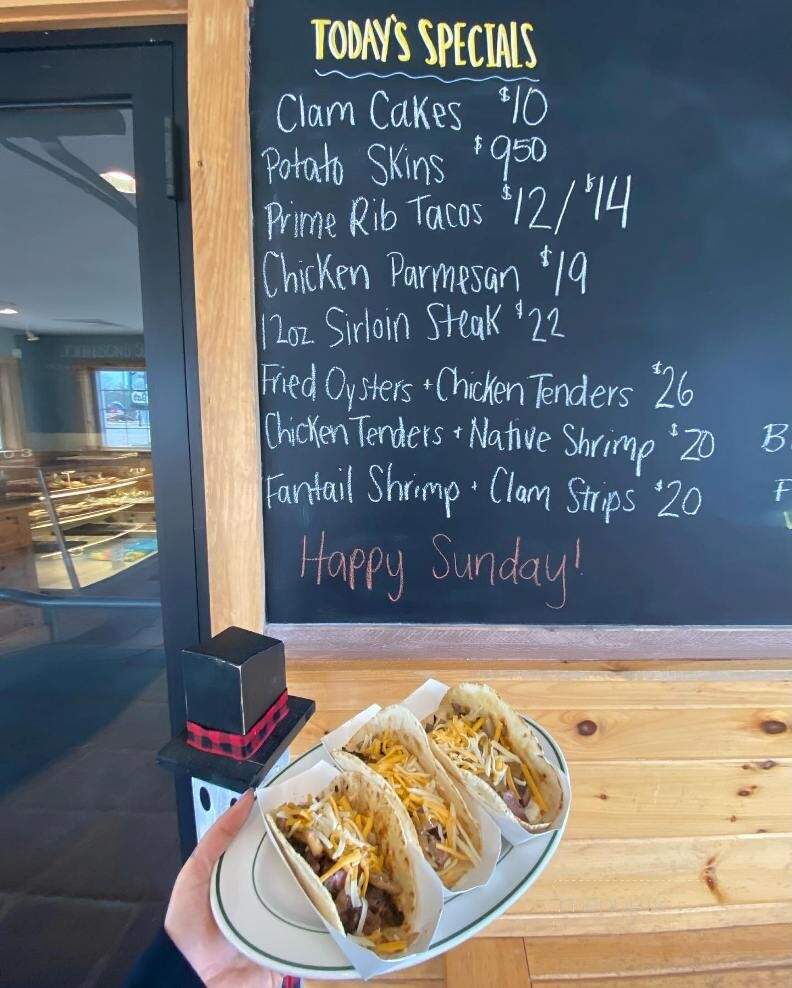 TODAY'S SPECIALS
Clam Cakes $10
Potato Skins $950
Prime Rib Tacos $12/$14
Chicken Parmesan $19
12oz Sirloin Steak $22
Fried Oysters + Chicken Tenders $26
Chicken Tenders + Native Shrimp $20
Fantail Shrimp + Clam Strips $20
Happy Sunday!